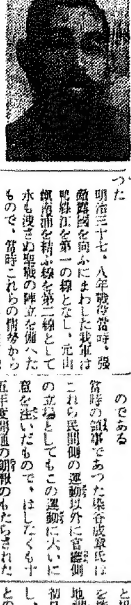 つた
明治三十七、八年戰役當時、强
敵露國を向ふにまわした我軍は
鴨綠江を第一の線となし、元山
鎭南浦を結ぶ線を第二線として
水も洩さぬ聖戰の陣立を備へた
もので、當時これらの情勢から
のである
當時の領事であつた染谷成章氏は
これら民間側の運動以外に官廳側
の立場としてもこの運動に大いに
意を注いだもので、はしたくも十
五年度開通の朗報のもたらされた